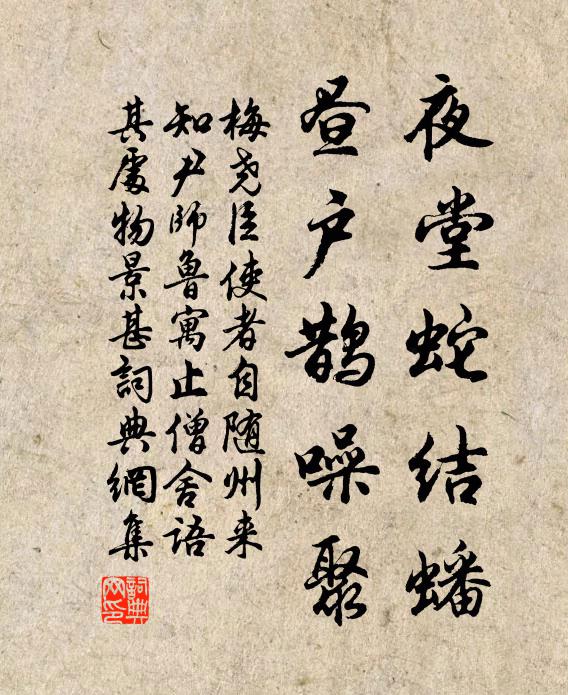 夜堂蛇结蟠
昼户鹊噪聚
梅尧臣使者自随州来
知尹师鲁寓止僧舍语
其处物景甚詞典網集
詞典